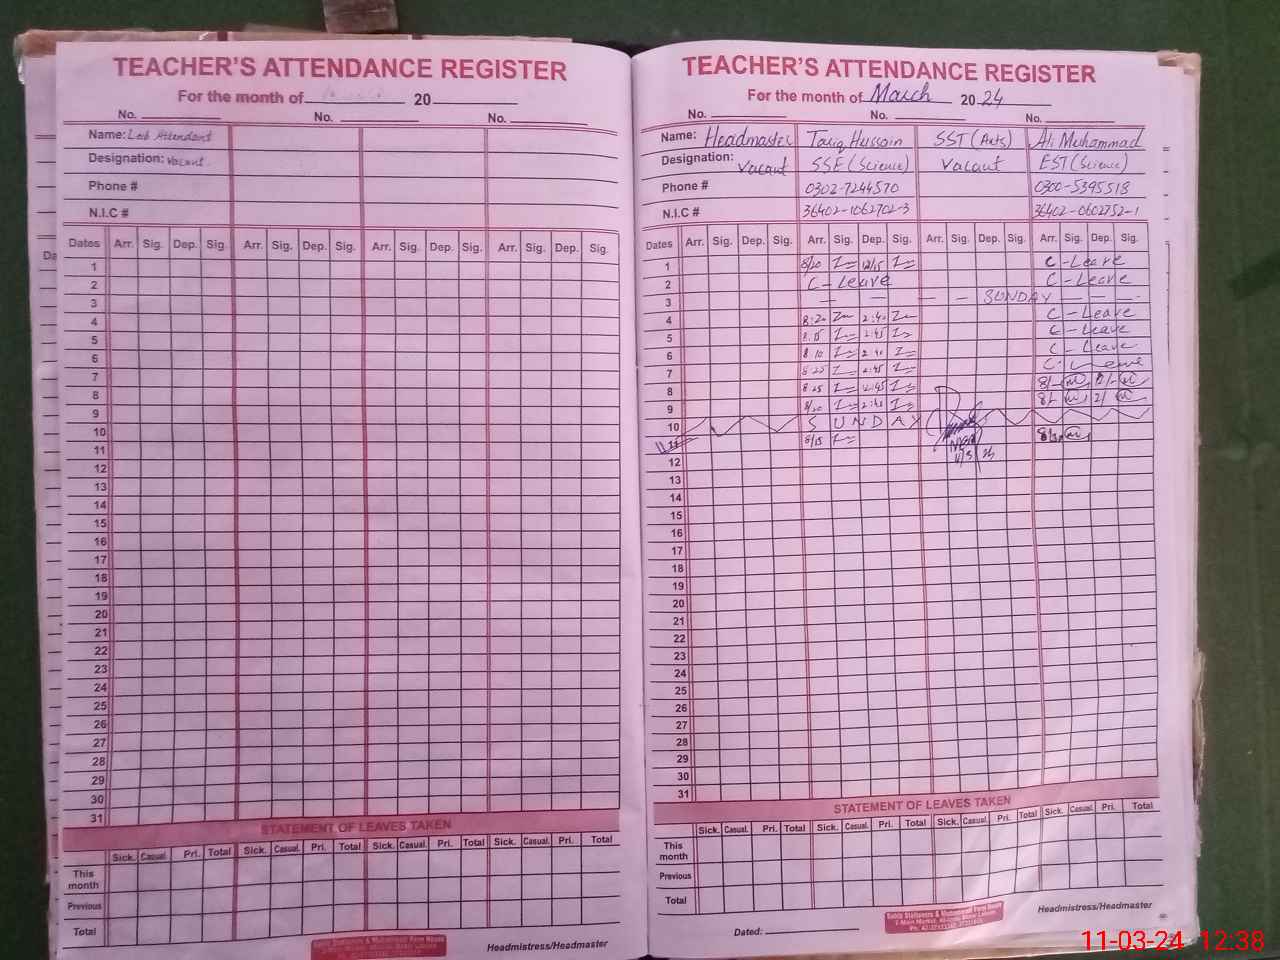 TEACHER'S ATTENDANCE REGISTER
For the month of 20
No. No. No.
Name: Lab Attendant
Designation: Vacant
Phone #
N.I.C #
Dates Arr. Sig. Dep. Sig. Arr. Sig. Dep. Sig. Arr. Sig. Dep. Sig. Arr. Sig. Dep. Sig.
1
2
3
4
5
6
7
8
9
10
11
12
13
14
15
16
17
18
19
20
21
22
23
24
25
26
27
28
29
30
31
STATEMENT OF LEAVES TAKEN
Sick. Casual. Pri. Total Sick. Casual. Pri. Total Sick. Casual. Pri. Total Sick. Casual. Pri. Total
This month
Previous
Total
Headmistress/Headmaster
TEACHER'S ATTENDANCE REGISTER
For the month of March 2024
No. No. No.
Name: Headmaster Tariq Hussain SST (Arts) Ali Muhammad
Designation: Vacant SSE (Science) Vacant EST (Science)
Phone # 0302-7244570 0300-5395518
N.I.C # 36402-1062702-3 36402-0602752-1
Dates Arr. Sig. Dep. Sig. Arr. Sig. Dep. Sig. Arr. Sig. Dep. Sig. Arr. Sig. Dep. Sig.
1 8/20 12/15 C-Leave
2 C-Leave C-Leave
3 SUNDAY
4 8:20 2:40 C-Leave
5 8.15 2:45 C-Leave
6 8 10 2:40 C-Leave
7 8:25 2:45 C-Leave
8 8:25 12:45 8/- 12/-
9 8/20 2:40 8/- 2/
10 SUNDAY
11 8/15
12
13
14
15
16
17
18
19
20
21
22
23
24
25
26
27
28
29
30
31
STATEMENT OF LEAVES TAKEN
Sick. Casual. Pri. Total Sick. Casual. Pri. Total Sick. Casual. Pri. Total Sick. Casual. Pri. Total
This month
Previous
Total
Dated:
Headmistress/Headmaster
11-03-24 12:38